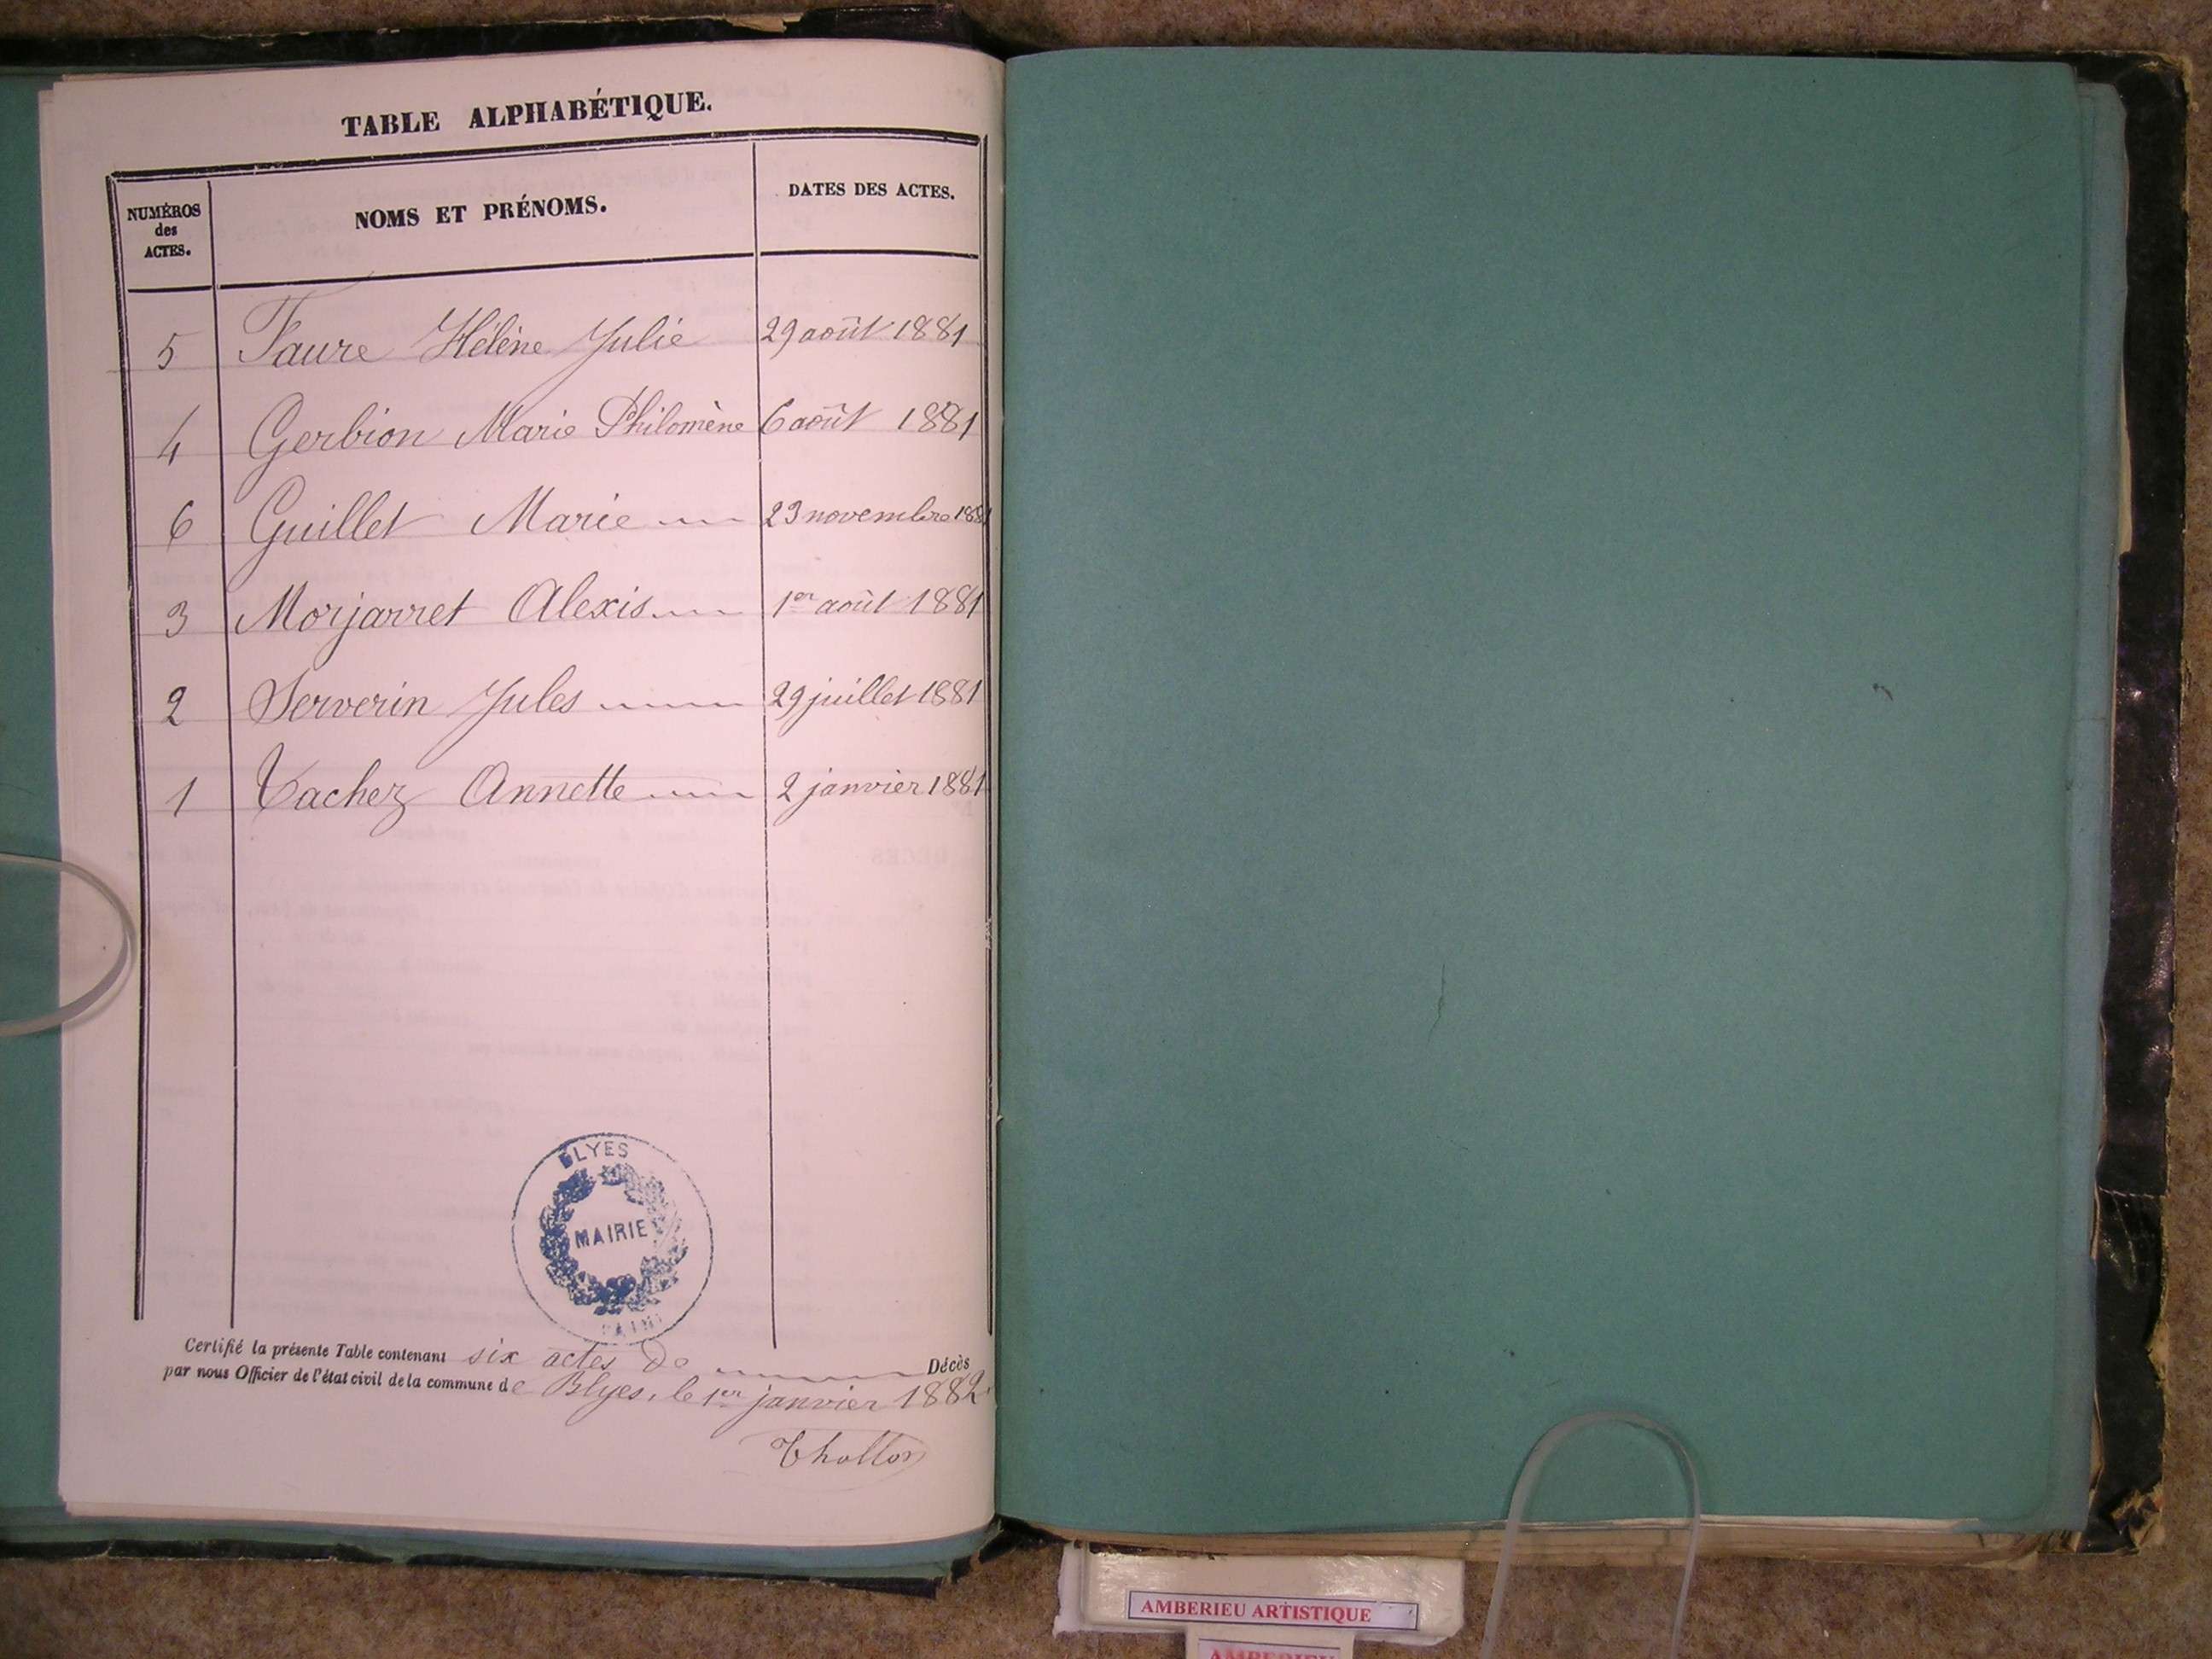 TABLE ALPHABÉTIQUE.
NUMÉROS des ACTES. NOMS ET PRÉNOMS. DATES DES ACTES.
5 Faure Hélène Julie 29 août 1881
4 Gerbion Marie Philomène 6 août 1881
6 Guillet Marie 23 novembre 1881
3 Morjarret Alexis 1er août 1881
2 Serverin Jules 29 juillet 1881
1 Vachez Annette 2 janvier 1881
BLYES
MAIRIE
(AIN)
Certifié la présente Table contenant six actes de Décès
par nous Officier de l'état civil de la commune de Blyes, le 1er janvier 1882
Thollon
AMBERIEU ARTISTIQUE
AMBERIEU